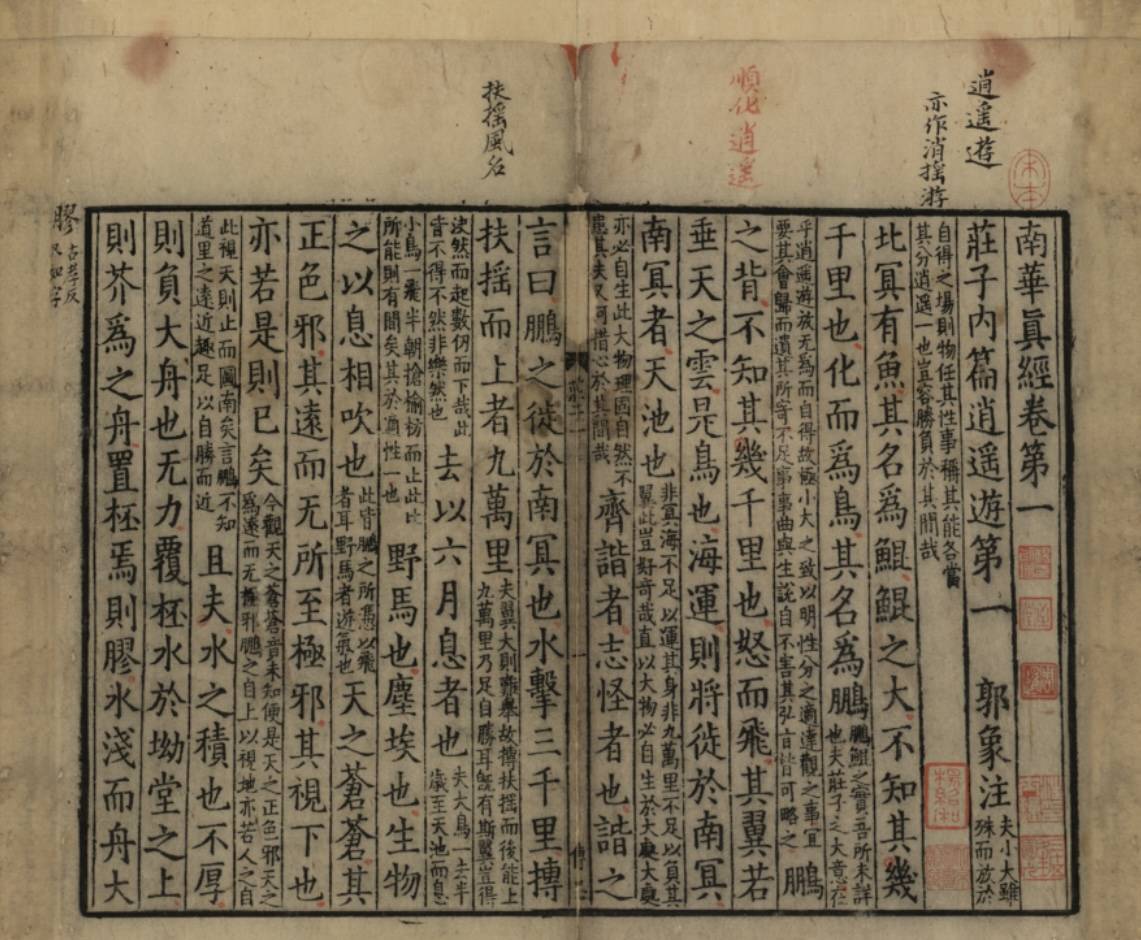 逍遥遊
亦作消摇游
順化逍遥
扶摇風名
膠
南華眞經卷第一
莊子內篇逍遥遊第一 郭象注 夫小大雖
殊而放於
自得之場則物任其性事稱其能各當
其分逍遥一也豈容勝負於其閒哉
北冥有魚其名爲鯤鯤之大不知其幾
千里也化而爲鳥其名爲鵬 鵬鯤之實吾所未詳
也夫莊子之大意在
乎逍遥遊放无爲而自得故極小大之致以明性分之適達觀之事宜
要其會歸而遺其所寄不足事事曲與生說自不害其弘旨皆可略之 鵬
之背不知其幾千里也怒而飛其翼若
垂天之雲是鳥也海運則將徙於南冥
南冥者天池也 非冥海不足以運其身非九萬里不足以負其
翼此豈好奇哉直以大物必自生於大處大處
亦必自生此大物理固自然不
患其失又何措心於其閒哉 齊諧者志怪者也諧之
莊子一
言曰鵬之徙於南冥也水擊三千里摶
扶摇而上者九萬里 夫翼大則難舉故摶扶摇而後能上
九萬里乃足自勝耳旣有斯翼豈得
決然而起數仞而下哉此
皆不得不然非樂然也 去以六月息者也 夫大鳥一去半
歲至天池而息
小鳥一飛半朝搶榆枋而止此比
所能則有閒矣其於適性一也 野馬也塵埃也生物
之以息相吹也 此皆鵬之所憑以飛
者耳野馬者遊氣也 天之蒼蒼其
正色邪其遠而无所至極邪其視下也
亦若是則已矣 今觀天之蒼蒼竟未知便是天之正色邪天之
爲遠而无極邪鵬之自上以視地亦若人之自
此視天則止而圖南矣言鵬不知
道里之遠近趣足以自勝而逝 且夫水之積也不厚
則負大舟也无力覆杯水於坳堂之上
則芥爲之舟置杯焉則膠水淺而舟大